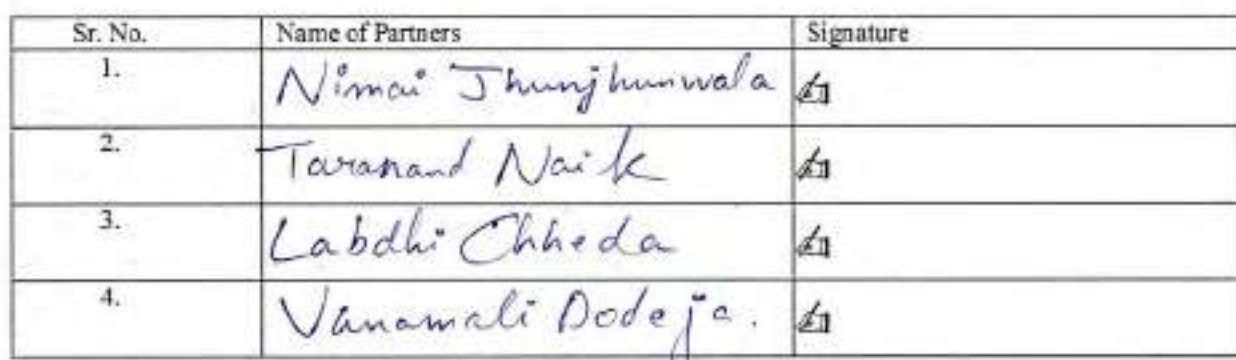 Sr. No. Name of Partners Signature
1. Nimai Jhunjhunwala
2. Taranand Naik
3. Labdhi Chheda
4. Vanamali Dodeja.